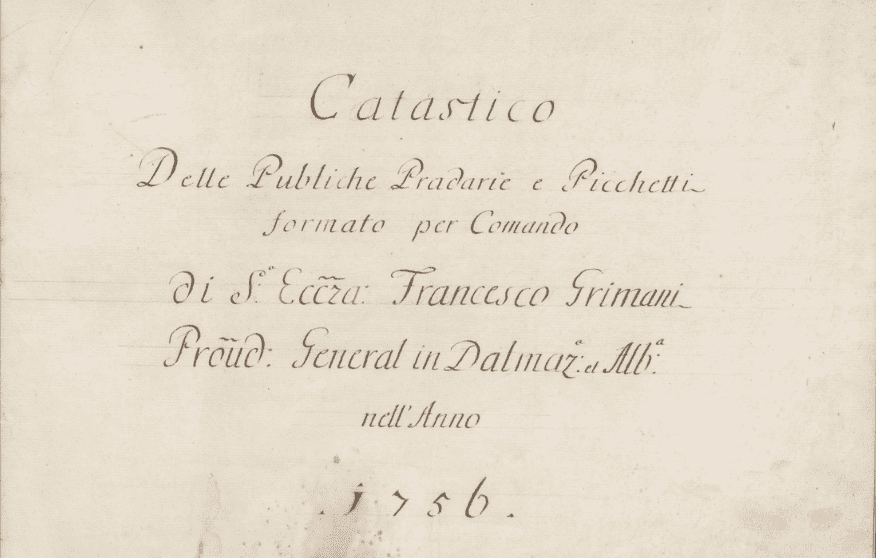 Catastico
Delle Publiche Pradarie e Picchetti
formato per Comando
di S.ª Ecc̃za: Francesco Grimani
Prõũd: General in Dalmaz.ª: et Alb.ª:
nell'Anno
.1756.